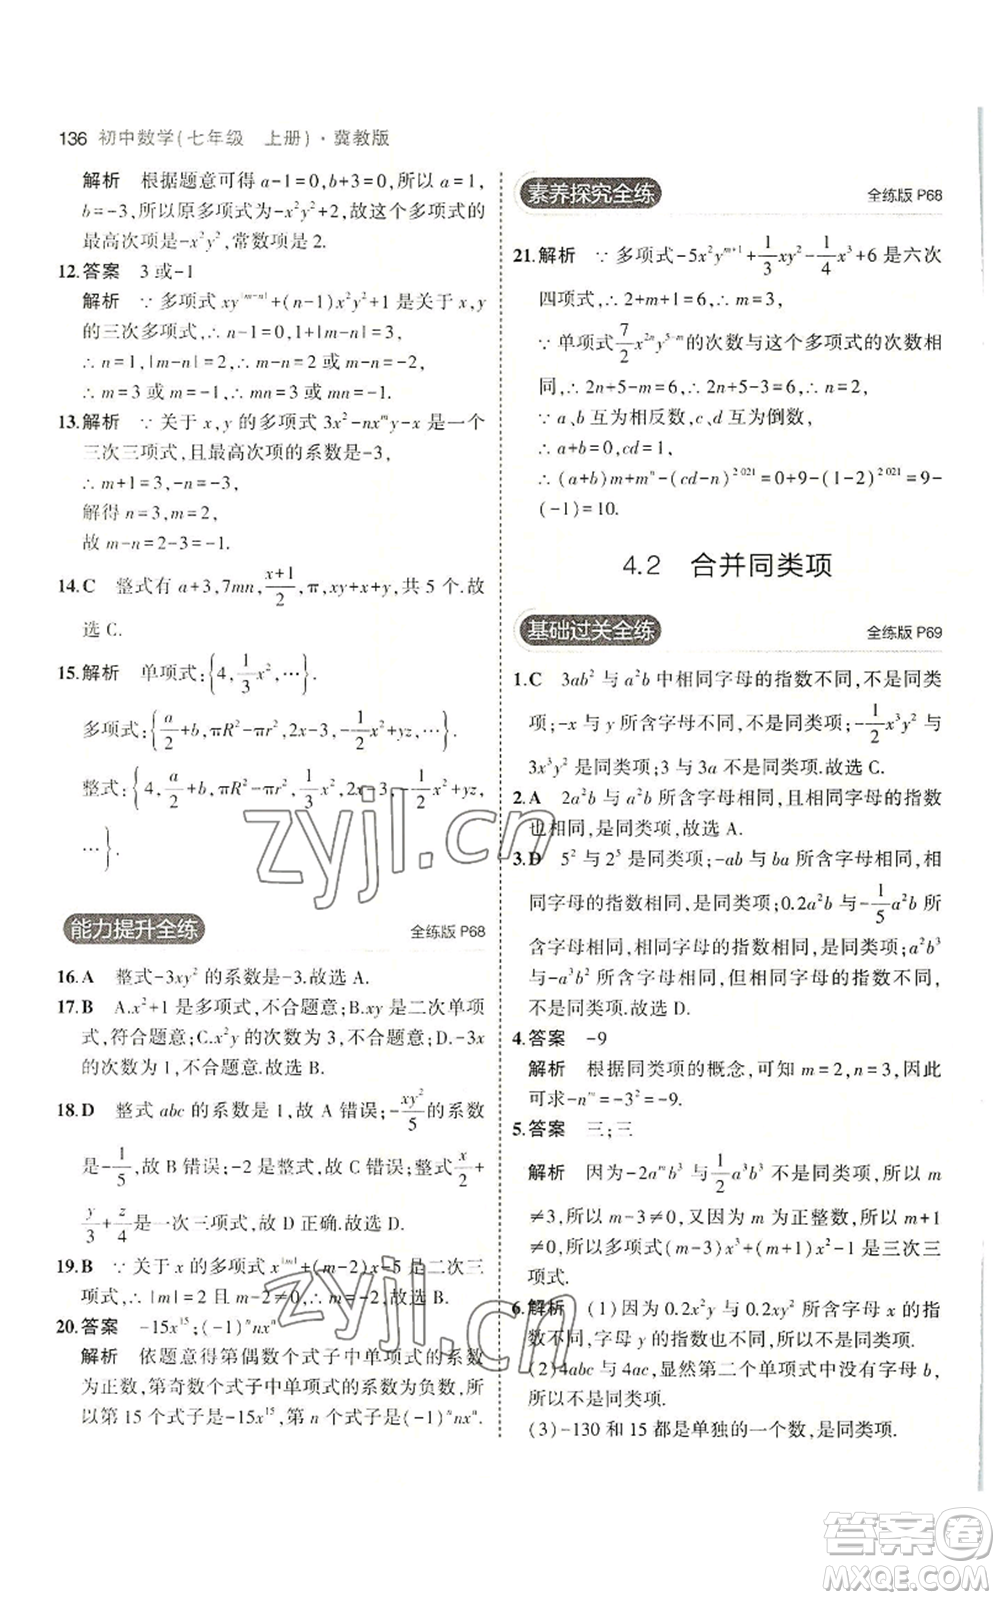 136 初中数学(七年级 上册)·冀教版
解析 根据题意可得 a-1=0,b+3=0,所以 a=1,
b=-3,所以原多项式为-x²y²+2,故这个多项式的
最高次项是-x²y²,常数项是 2.
12.答案 3 或-1
解析 ∵ 多项式 xy^|m-n|+(n-1)x²y²+1 是关于 x,y
的三次多项式,∴ n-1=0,1+|m-n|=3,
∴ n=1,|m-n|=2,∴ m-n=2 或 m-n=-2,
∴ m=3 或 m=-1,∴ mn=3 或 mn=-1.
13.解析 ∵ 关于 x,y 的多项式 3x²-nx^m y-x 是一个
三次三项式,且最高次项的系数是-3,
∴ m+1=3,-n=-3,
解得 n=3,m=2,
故 m-n=2-3=-1.
14.C 整式有 a+3,7mn,(x+1)/2,π,xy+x+y,共 5 个.故
选 C.
15.解析 单项式:{4,1/3 x²,…}.
多项式:{a/2+b,πR²-πr²,2x-3,-x²+yz,…}.
整式:{4,a/2+b,πR²-πr²,1/3 x²,2x-3,-x²+yz,
…}.
能力提升全练 全练版 P68
16.A 整式-3xy² 的系数是-3.故选 A.
17.B A.x²+1 是多项式,不合题意;B.xy 是二次单项
式,符合题意;C.x²y 的次数为 3,不合题意;D.-3x
的次数为 1,不合题意.故选 B.
18.D 整式 abc 的系数是 1,故 A 错误;-xy²/5 的系数
是-1/5,故 B 错误;-2 是整式,故 C 错误;整式 x/2+
y/3+z/4是一次三项式,故 D 正确.故选 D.
19.B ∵ 关于 x 的多项式 x^|m|+(m-2)x-5 是二次三
项式,∴ |m|=2 且 m-2≠0,∴ m=-2,故选 B.
20.答案 -15x¹⁵;(-1)ⁿnxⁿ
解析 依题意得第偶数个式子中单项式的系数
为正数,第奇数个式子中单项式的系数为负数,所
以第 15 个式子是-15x¹⁵,第 n 个式子是(-1)ⁿnxⁿ.
素养探究全练 全练版 P68
21.解析 ∵ 多项式-5x²y^(m+1)+1/3 xy²-1/4 x³+6 是六次
四项式,∴ 2+m+1=6,∴ m=3,
∵ 单项式7/2 x^(2n)y^(5-m)的次数与这个多项式的次数相
同,∴ 2n+5-m=6,∴ 2n+5-3=6,∴ n=2,
∵ a,b 互为相反数,c,d 互为倒数,
∴ a+b=0,cd=1,
∴ (a+b)m+mⁿ-(cd-n)^2 021=0+9-(1-2)^2 021=9-
(-1)=10.
4.2 合并同类项
基础过关全练 全练版 P69
1.C 3ab² 与 a²b 中相同字母的指数不同,不是同类
项;-x 与 y 所含字母不同,不是同类项;-1/2 x³y² 与
3x³y² 是同类项;3 与 3a 不是同类项.故选 C.
2.A 2a²b 与 a²b 所含字母相同,且相同字母的指数
也相同,是同类项.故选 A.
3.D 5² 与 2⁵ 是同类项;-ab 与 ba 所含字母相同,相
同字母的指数相同,是同类项;0.2a²b 与-1/5 a²b 所
含字母相同,相同字母的指数相同,是同类项;a²b³
与-a³b² 所含字母相同,但相同字母的指数不同,
不是同类项.故选 D.
4.答案 -9
解析 根据同类项的概念,可知 m=2,n=3,因此
可求-n^m=-3²=-9.
5.答案 三;三
解析 因为-2a^m b³ 与 1/2 a³b³ 不是同类项,所以 m
≠3,所以 m-3≠0,又因为 m 为正整数,所以 m+1
≠0,所以多项式(m-3)x³+(m+1)x²-1 是三次三
项式.
6.解析 (1)因为 0.2x²y 与 0.2xy² 所含字母 x 的指
数不同,字母 y 的指数不同,所以不是同类项.
(2)4abc 与 4ac,显然第二个单项式中没有字母 b,
所以不是同类项.
(3)-130 和 15 都是单独的一个数,是同类项.
zyjl.cn
zyjl.cn
答案卷